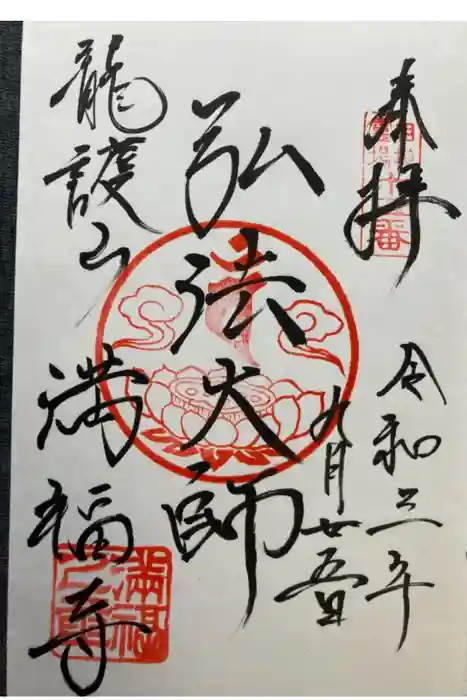 奉拝
令和三年
九月廿五日
弘法大師
龍護山
満福寺
満福